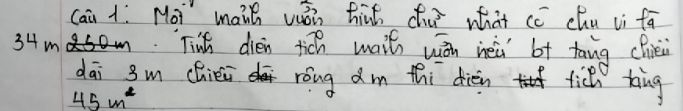 Câu 1: Một mảnh vườn hình chữ nhật có chu vi là
34 m 250m. Tính diện tích mảnh vườn nếu bt tăng chiều
dài 3 m chiều dài rộng 2m thì diện tích tăng
45 m²